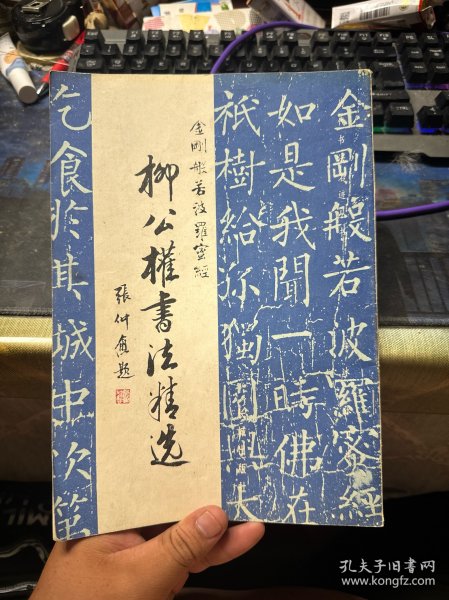 金剛般若波羅蜜經
如是我聞一時佛在
祇樹給孤獨園
乞食於其城中次第
金剛般若波羅蜜經
柳公權書法精选
張仲愈題
孔夫子旧书网
www.kongfz.com